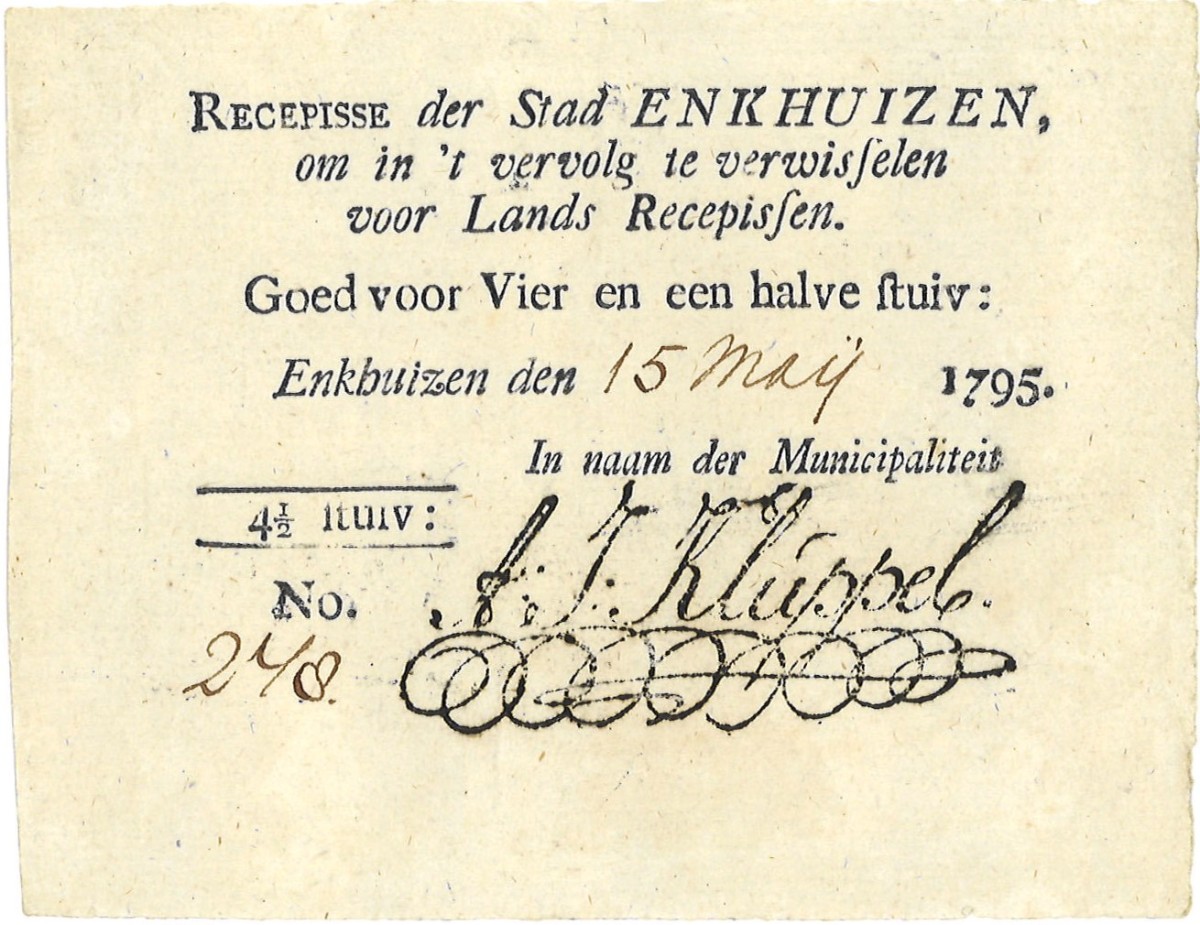 RECEPISSE der Stad ENKHUIZEN,
om in 't vervolg te verwisſelen
voor Lands Recepisſen.
Goed voor Vier en een halve ſtuiv:
Enkhuizen den 15 Maÿ 1795.
In naam der Municipaliteit
4½ ſtuiv:
A: J: Klúppel.
No.
248.